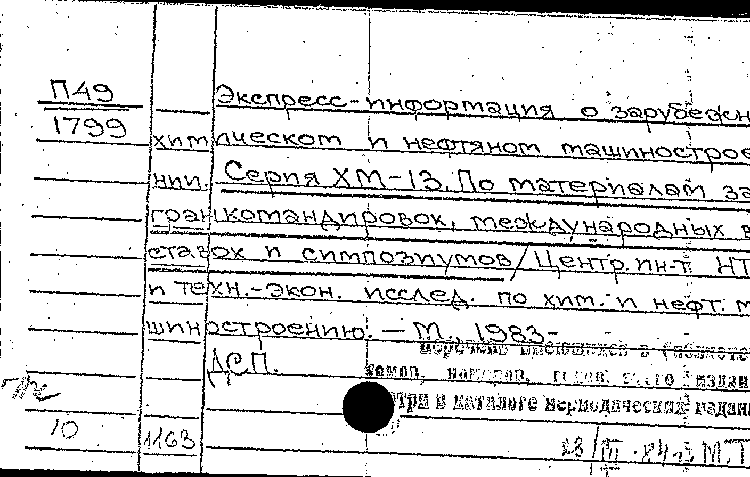 П49
1799
Экспресс-информация о зарубежн
химическом и нефтяном машинострое
нии. Серия ХМ-13. По материалам за
гранкомандировок, международных в
ставок и симпозиумов/Центр. ин-т НТ
и техн.-экон. исслед. по хим. и нефт. м
шиностроению. — М., 1983-
ДСП.
перечень имеющихся в библиоте
томов, номеров, годов этого издан
в каталоге периодических издан
10
1163
М.Т